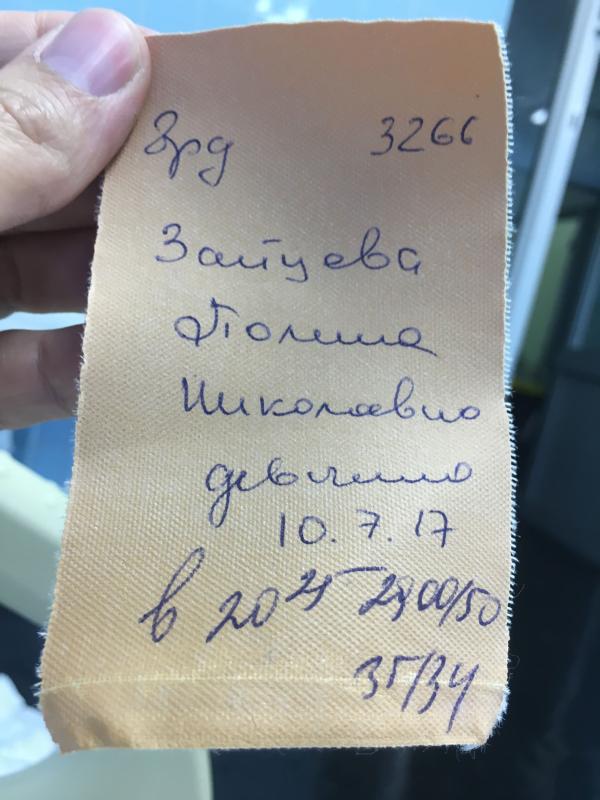 Зрд 3266
Зайцева
Полина
Николавна
девочка
10.7.17
в 20 25 2900/50
35/34